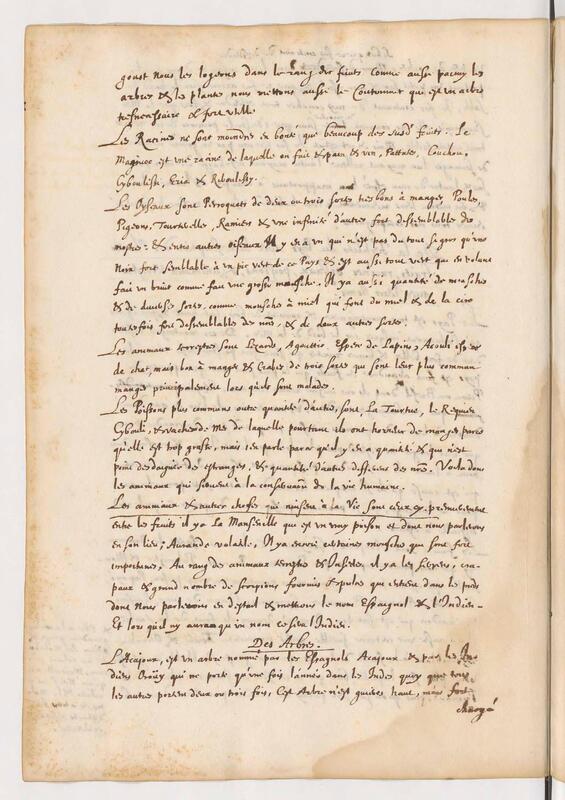 goust nous les logerons dans le rang des fruits comme aussi parmy les
arbres & les plantes nous mettons aussi le Coutonnat qui est un arbre
tresnecessaire & fort utille
Les Racines ne sont moindres en bonté que beaucoup des susd fruits. Le
Magnioc est une racine de laquelle on fait & pain & vin, Pattates, Couchou,
Les Oyseaux sont Perroquets de deux ou trois sortes tres bons à manger, Poules,
Pigeons, Tourterelles, Ramiers & une infinité d'autres fort dissemblable des
nostres: & entre autres oiseaux Il y en a un qui n'est pas du tout si gros qu'une
Noix fort semblable à un pic vert de ce Pays & est aussi tout vert qui en volant
fait un bruit comme fait une grosse mouche. Il y a aussi quantité de mousches
& de diverses sortes, comme mousches à miel qui font du miel & de la cire
toutesfois fort dissemblables des nres, & de deux autres sortes.
Les animaux terrestres sont Lezards, Agouttis, Espece de Lapins, Acouli espece
de chat, mais bon à manger & Crabes de trois sortes qui sont leur plus commun
manger principalement lors qu'ils sont malades.
Les Poissons plus communs outre quantité d'autres, sont, La Tourtue, le Requien
de laquelle pourtant ils ont horreur de manger parce
qu'elle est trop grasse, mais j'en parle parce qu'il y en a quantité & qui n'est
point desdaignée des estrangers, & quantité d'autres differens des nres. Voila donc
les animaux qui servent à la conservaon de la vie humaine.
Les animaux & autres choses qui nuisent à la Vie sont ceux cy, premierement
entre les fruits il y a La Mansenille qui est un vray poison et dont nous parlerons
en son lieu; volatile, Il y a encore certaines mousches qui sont fort
importunes, Au rang des animaux terrestres & Insectes il y a les Serpens, cra-
paux & grand nombre de scorpions fourmis & pulces qui entrent dans les pieds
dont nous parlerons en destail & mettrons le nom Espagnol & l'Indien-
Et lors qu'il n'y aura qu'un nom ce sera l'Indien.
Des Arbres.
L'Acajour, est un arbre nommé par les Espagnols Acajoux & par les In-
diens Oroüy qui ne porte qu'une fois l'année dans les Indes quoy que tous
les autres portent deux ou trois fois, Cest Arbre n'est guieres haut, mais fort